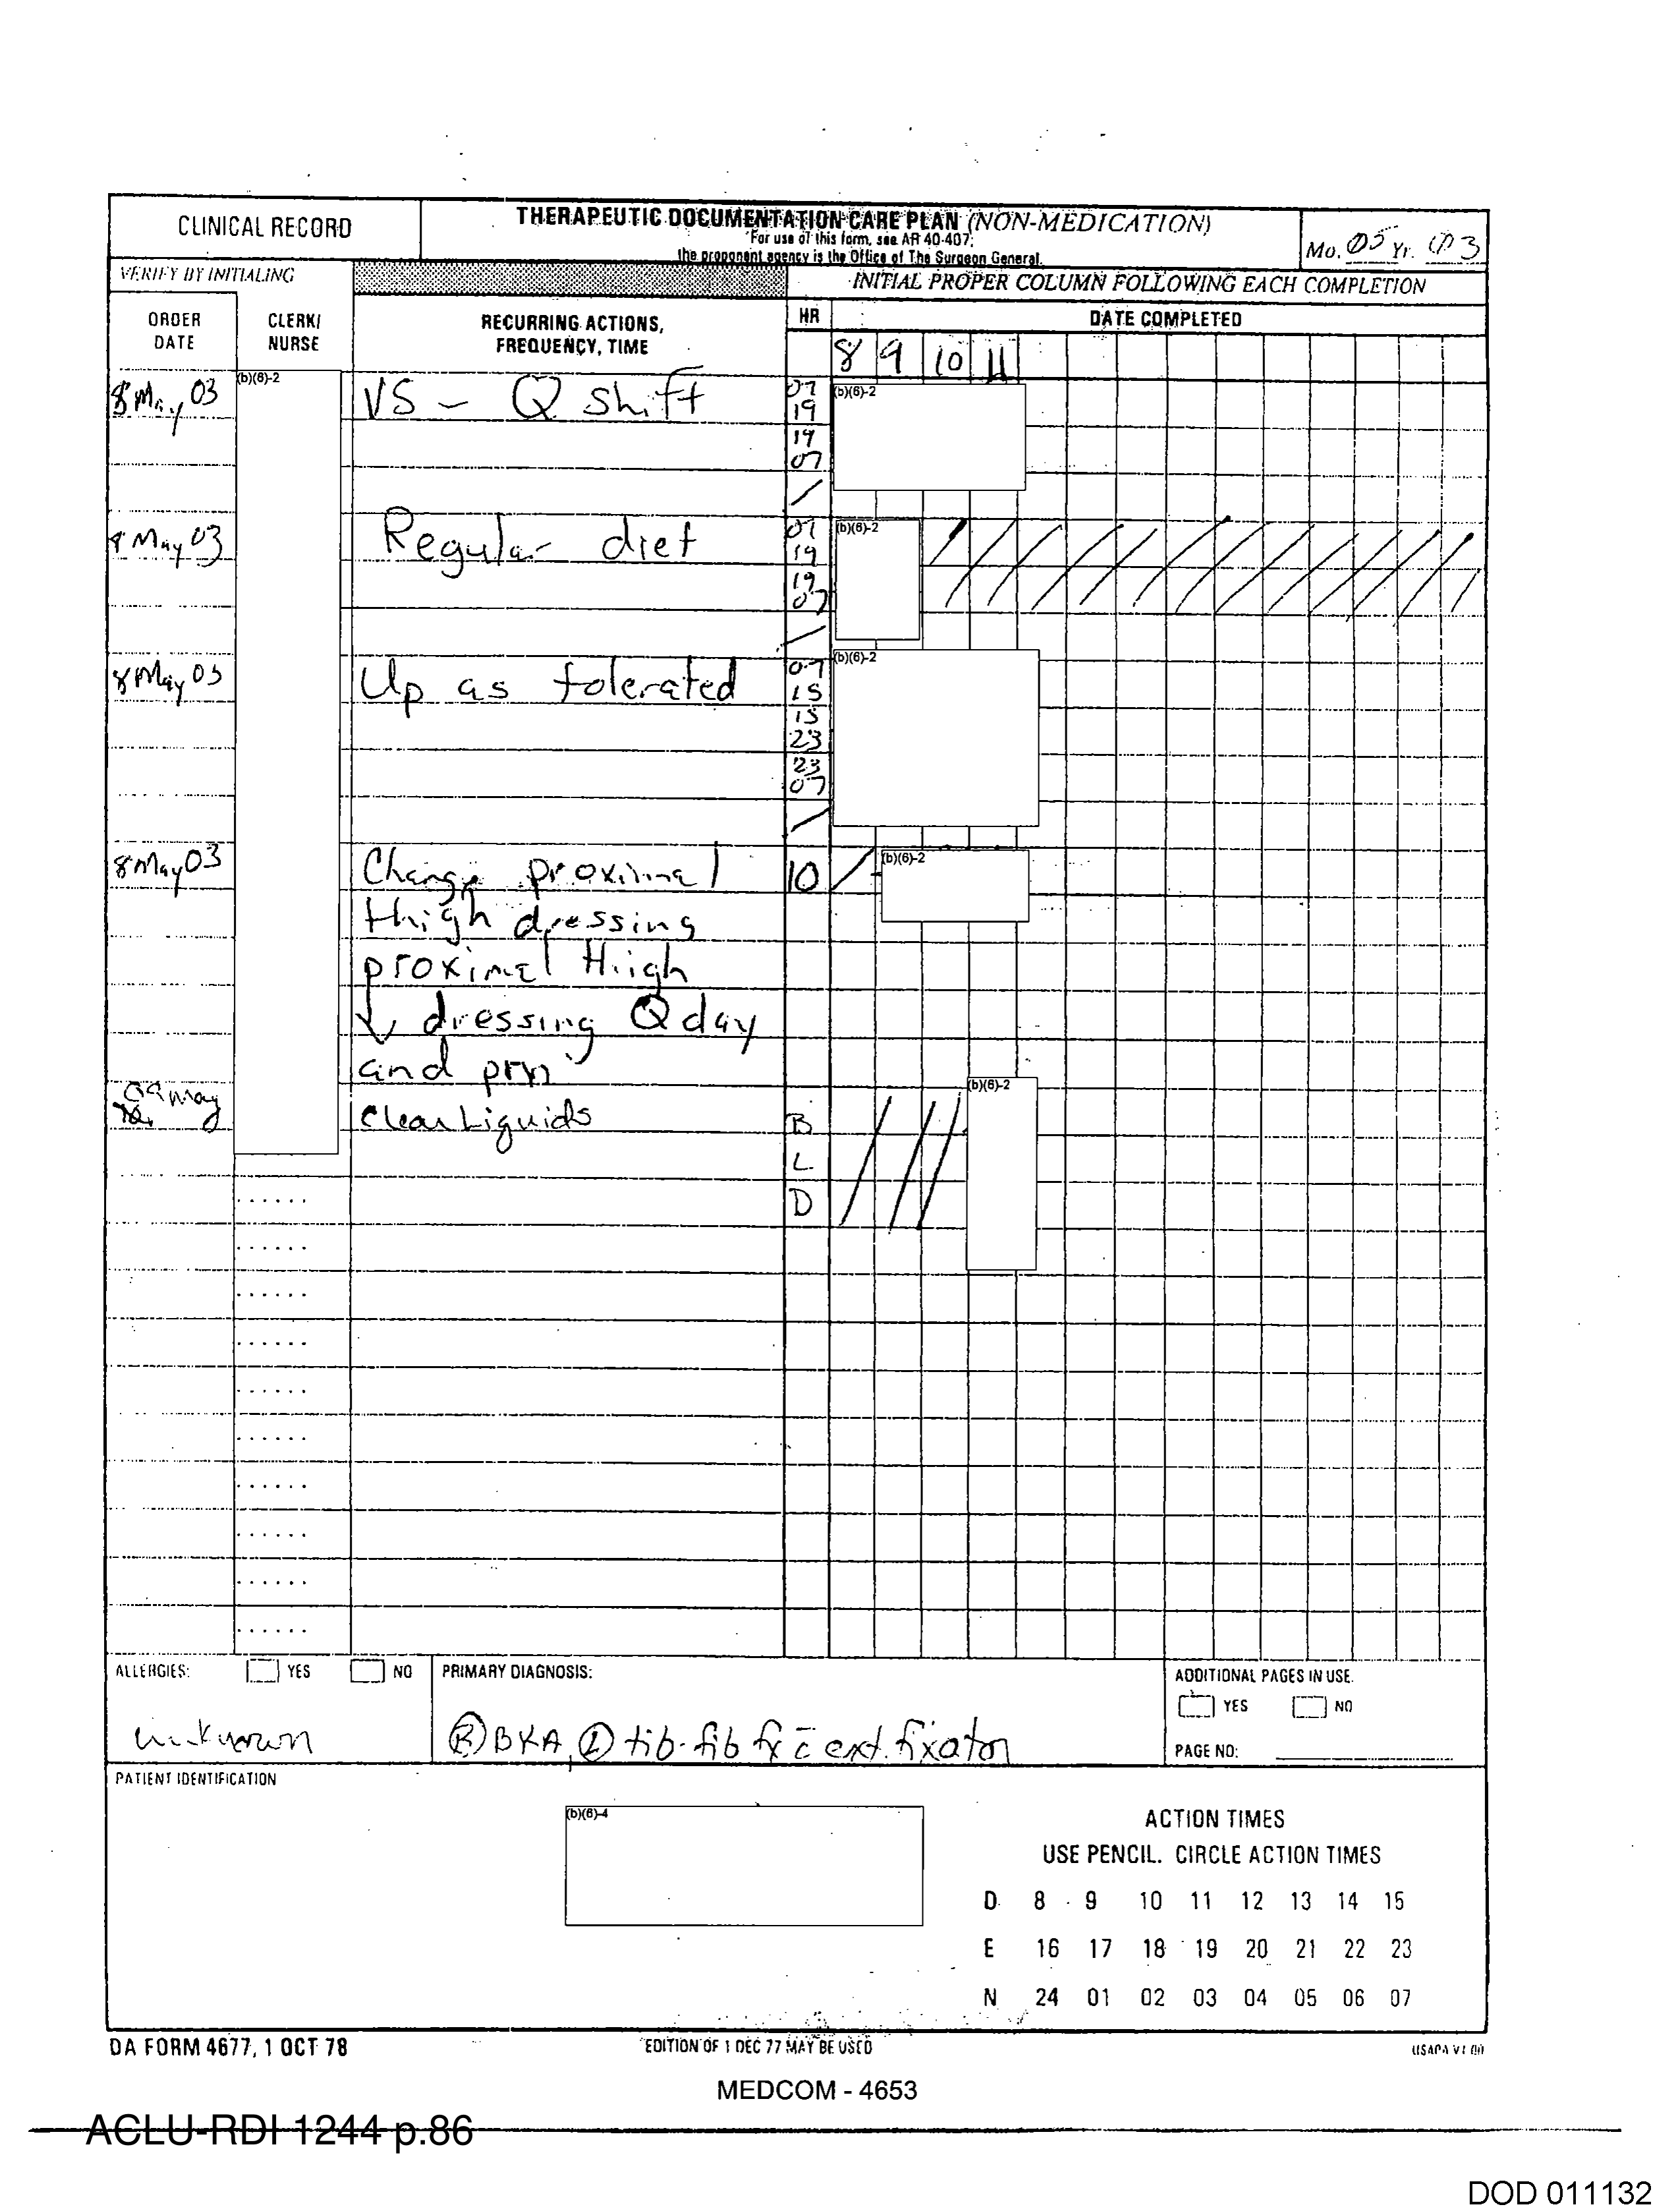 CLINICAL RECORD
THERAPEUTIC DOCUMENTATION CARE PLAN (NON-MEDICATION)
For use of this form, see AR 40-407;
the proponent agency is the Office of The Surgeon General.
Mo. 05 Yr. 03
VERIFY BY INITIALING
INITIAL PROPER COLUMN FOLLOWING EACH COMPLETION
ORDER DATE
CLERK/ NURSE
RECURRING ACTIONS, FREQUENCY, TIME
HR
DATE COMPLETED
8 9 10 11
8 May 03 (b)(6)-2 VS - Q shift 07 (b)(6)-2
19
19
07
8 May 03 Regular diet 07 (b)(6)-2
19
19
07
8 May 03 Up as tolerated 07 (b)(6)-2
15
15
23
23
07
8 May 03 Change proximal 10 (b)(6)-2
thigh dressing
proximal thigh
↓ dressing Q day
and prn (b)(6)-2
09 May Clear Liquids B
L
D
ALLERGIES: YES NO
unknown
PRIMARY DIAGNOSIS:
Ⓡ BKA, Ⓛ tib-fib fx c̄ ext. fixator
ADDITIONAL PAGES IN USE.
YES NO
PAGE NO:
PATIENT IDENTIFICATION
(b)(6)-4
ACTION TIMES
USE PENCIL. CIRCLE ACTION TIMES
D 8 9 10 11 12 13 14 15
E 16 17 18 19 20 21 22 23
N 24 01 02 03 04 05 06 07
DA FORM 4677, 1 OCT 78
EDITION OF 1 DEC 77 MAY BE USED
USAPA V1.00
MEDCOM - 4653
ACLU-RDI 1244 p.86
DOD 011132